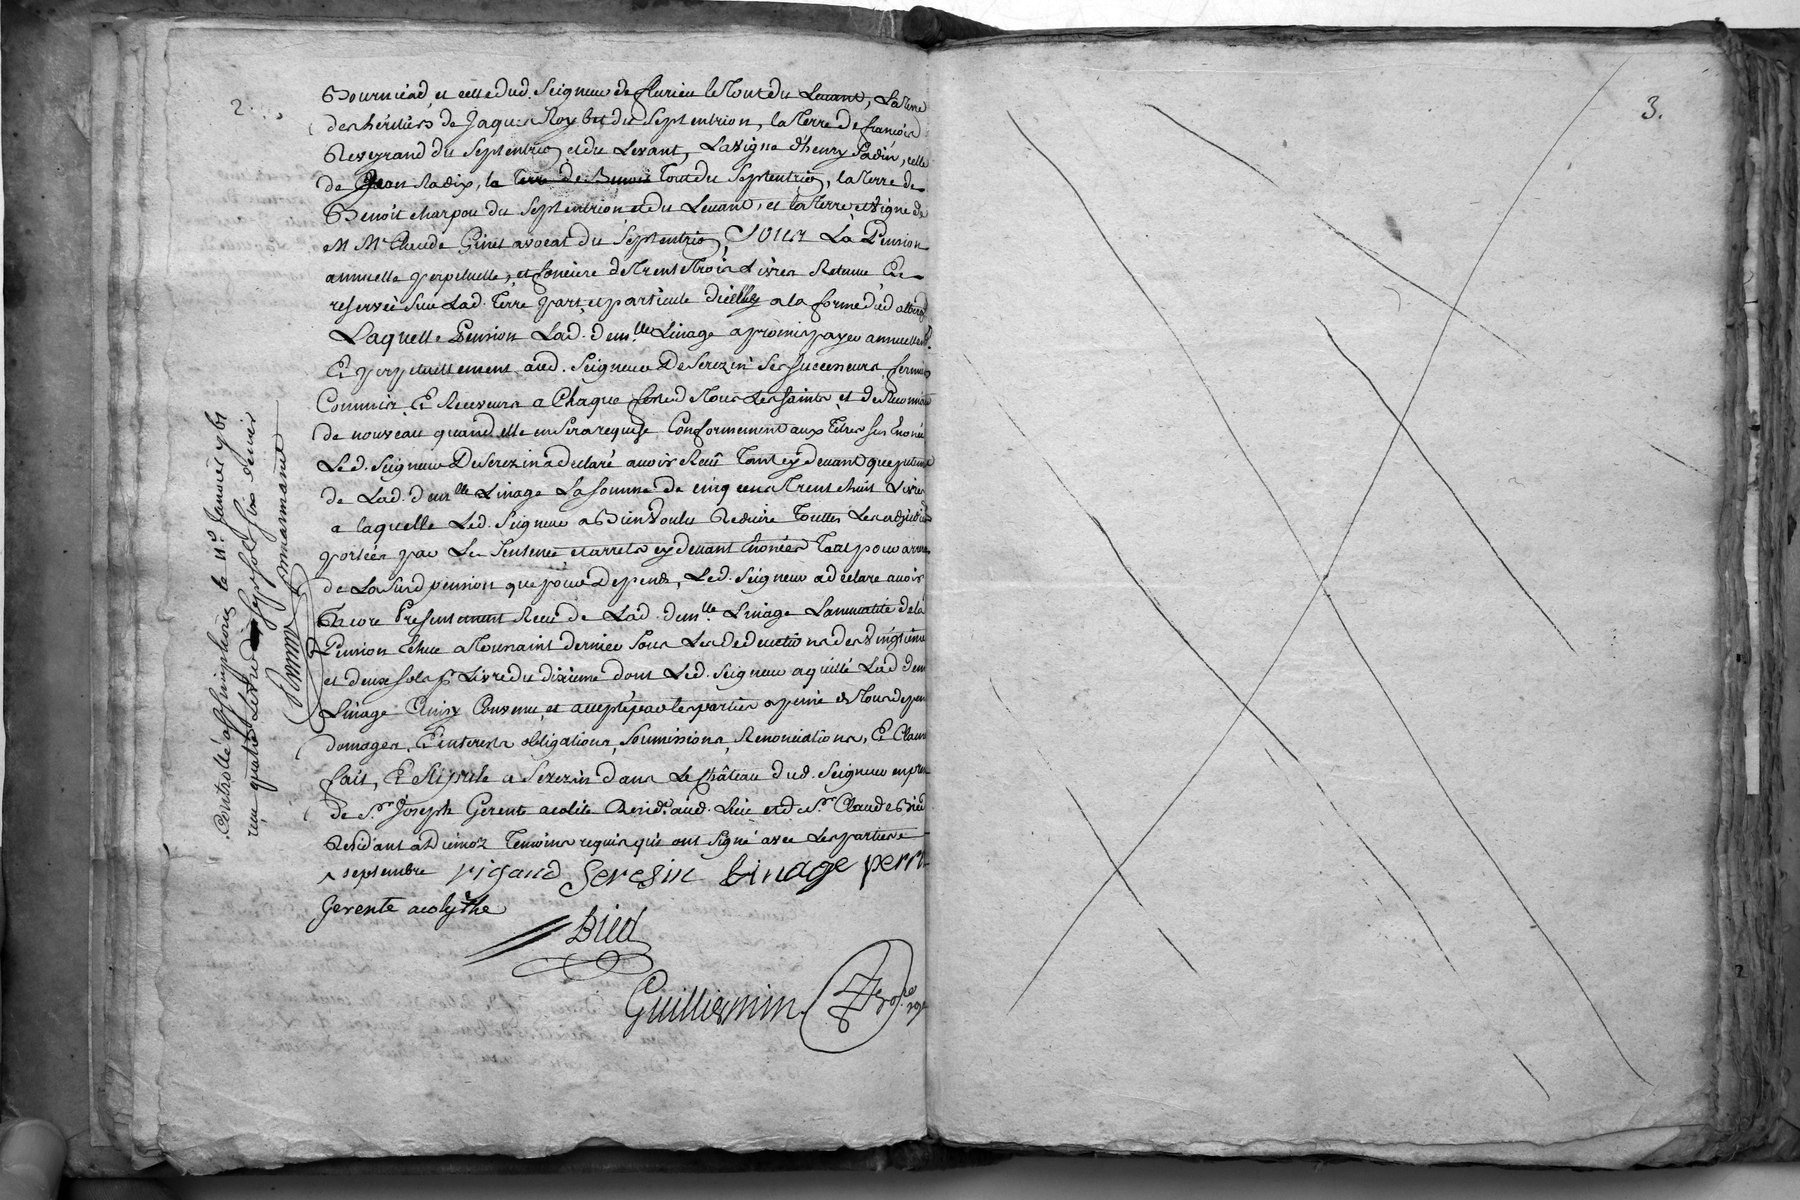 2.
Bournicad, et celle dud. Seigneur de flurieu le Tout du Levant, La terre
des héritiers de Jaques Roybet du Septentrion, la Terre de francois
Reveyrand du Septentrion et du Levant, La vigne d'henry Padin, celle
de Jean Radix, la Terre de Benoit Tout du Septentrion, la Terre de
Benoit charpou du Septentrion et du Levant, et la Terre et Vigne de
M Mre Claude Ginet avocat du Septentrion, SOUS La Pension
annuelle perpetuelle, et fonciere de Trente Trois Livres Retenue Et
reservée Sur Lad. Terre part et particule d'icelle a la forme dud
Laquelle Pension Lad. demlle Linage a promis payer annuellemt
Et perpetuellement aud. Seigneur De Serezin Ses Successeurs, fermiers
Commis, Et Receveurs a Chaque feste de Tous Les Saints et de Reconnoitre
de nouveau quand elle en Sera requise Conformement aux Titres Sus Enoncés
Led. Seigneur De Serezin a declaré avoir Receu Tant cy devant que presentement
de Lad. demlle Linage La Somme de cinq cens Trente huit Livres
a laquelle Led. Seigneur a Bien Voulu Reduire Touttes Les adjudications
portées par Les Sentence et arrets cy devant Enoncés Tant pour arrerages
de La Susd pension que pour Depens, Led. Seigneur a declaré avoir
Encore Presentement Receu de Lad. demlle Linage L'annuatité de la
Pension Echue a Toussaint dernier Sous Les Deductions des Vingtieme
et deux Sols p. Livre du dixieme dont Led. Seigneur a quitté Lad dem
Linage Ainsy Convenu, et accepté par les parties a peine de Tous depens
domages, Et interests obligations, Soumissions, Renonciations, Et Clauses
fait, Et Stipulé a Serezin dans Le Château dud. Seigneur en presence
de Sr Joseph Gerente acolite Resid. aud. Lieu et de Sr. Claude Bied
Residant a Diemoz Temoins requis qui ont Signé avec Les parties
septembre rigaud Seresin Linage perr
Gerente acolythe
Bied
Guilliermin
Controllé a St Simphorien le 11e. Janvier 17
receu quatre Livres Sept Sols Six denier
3.